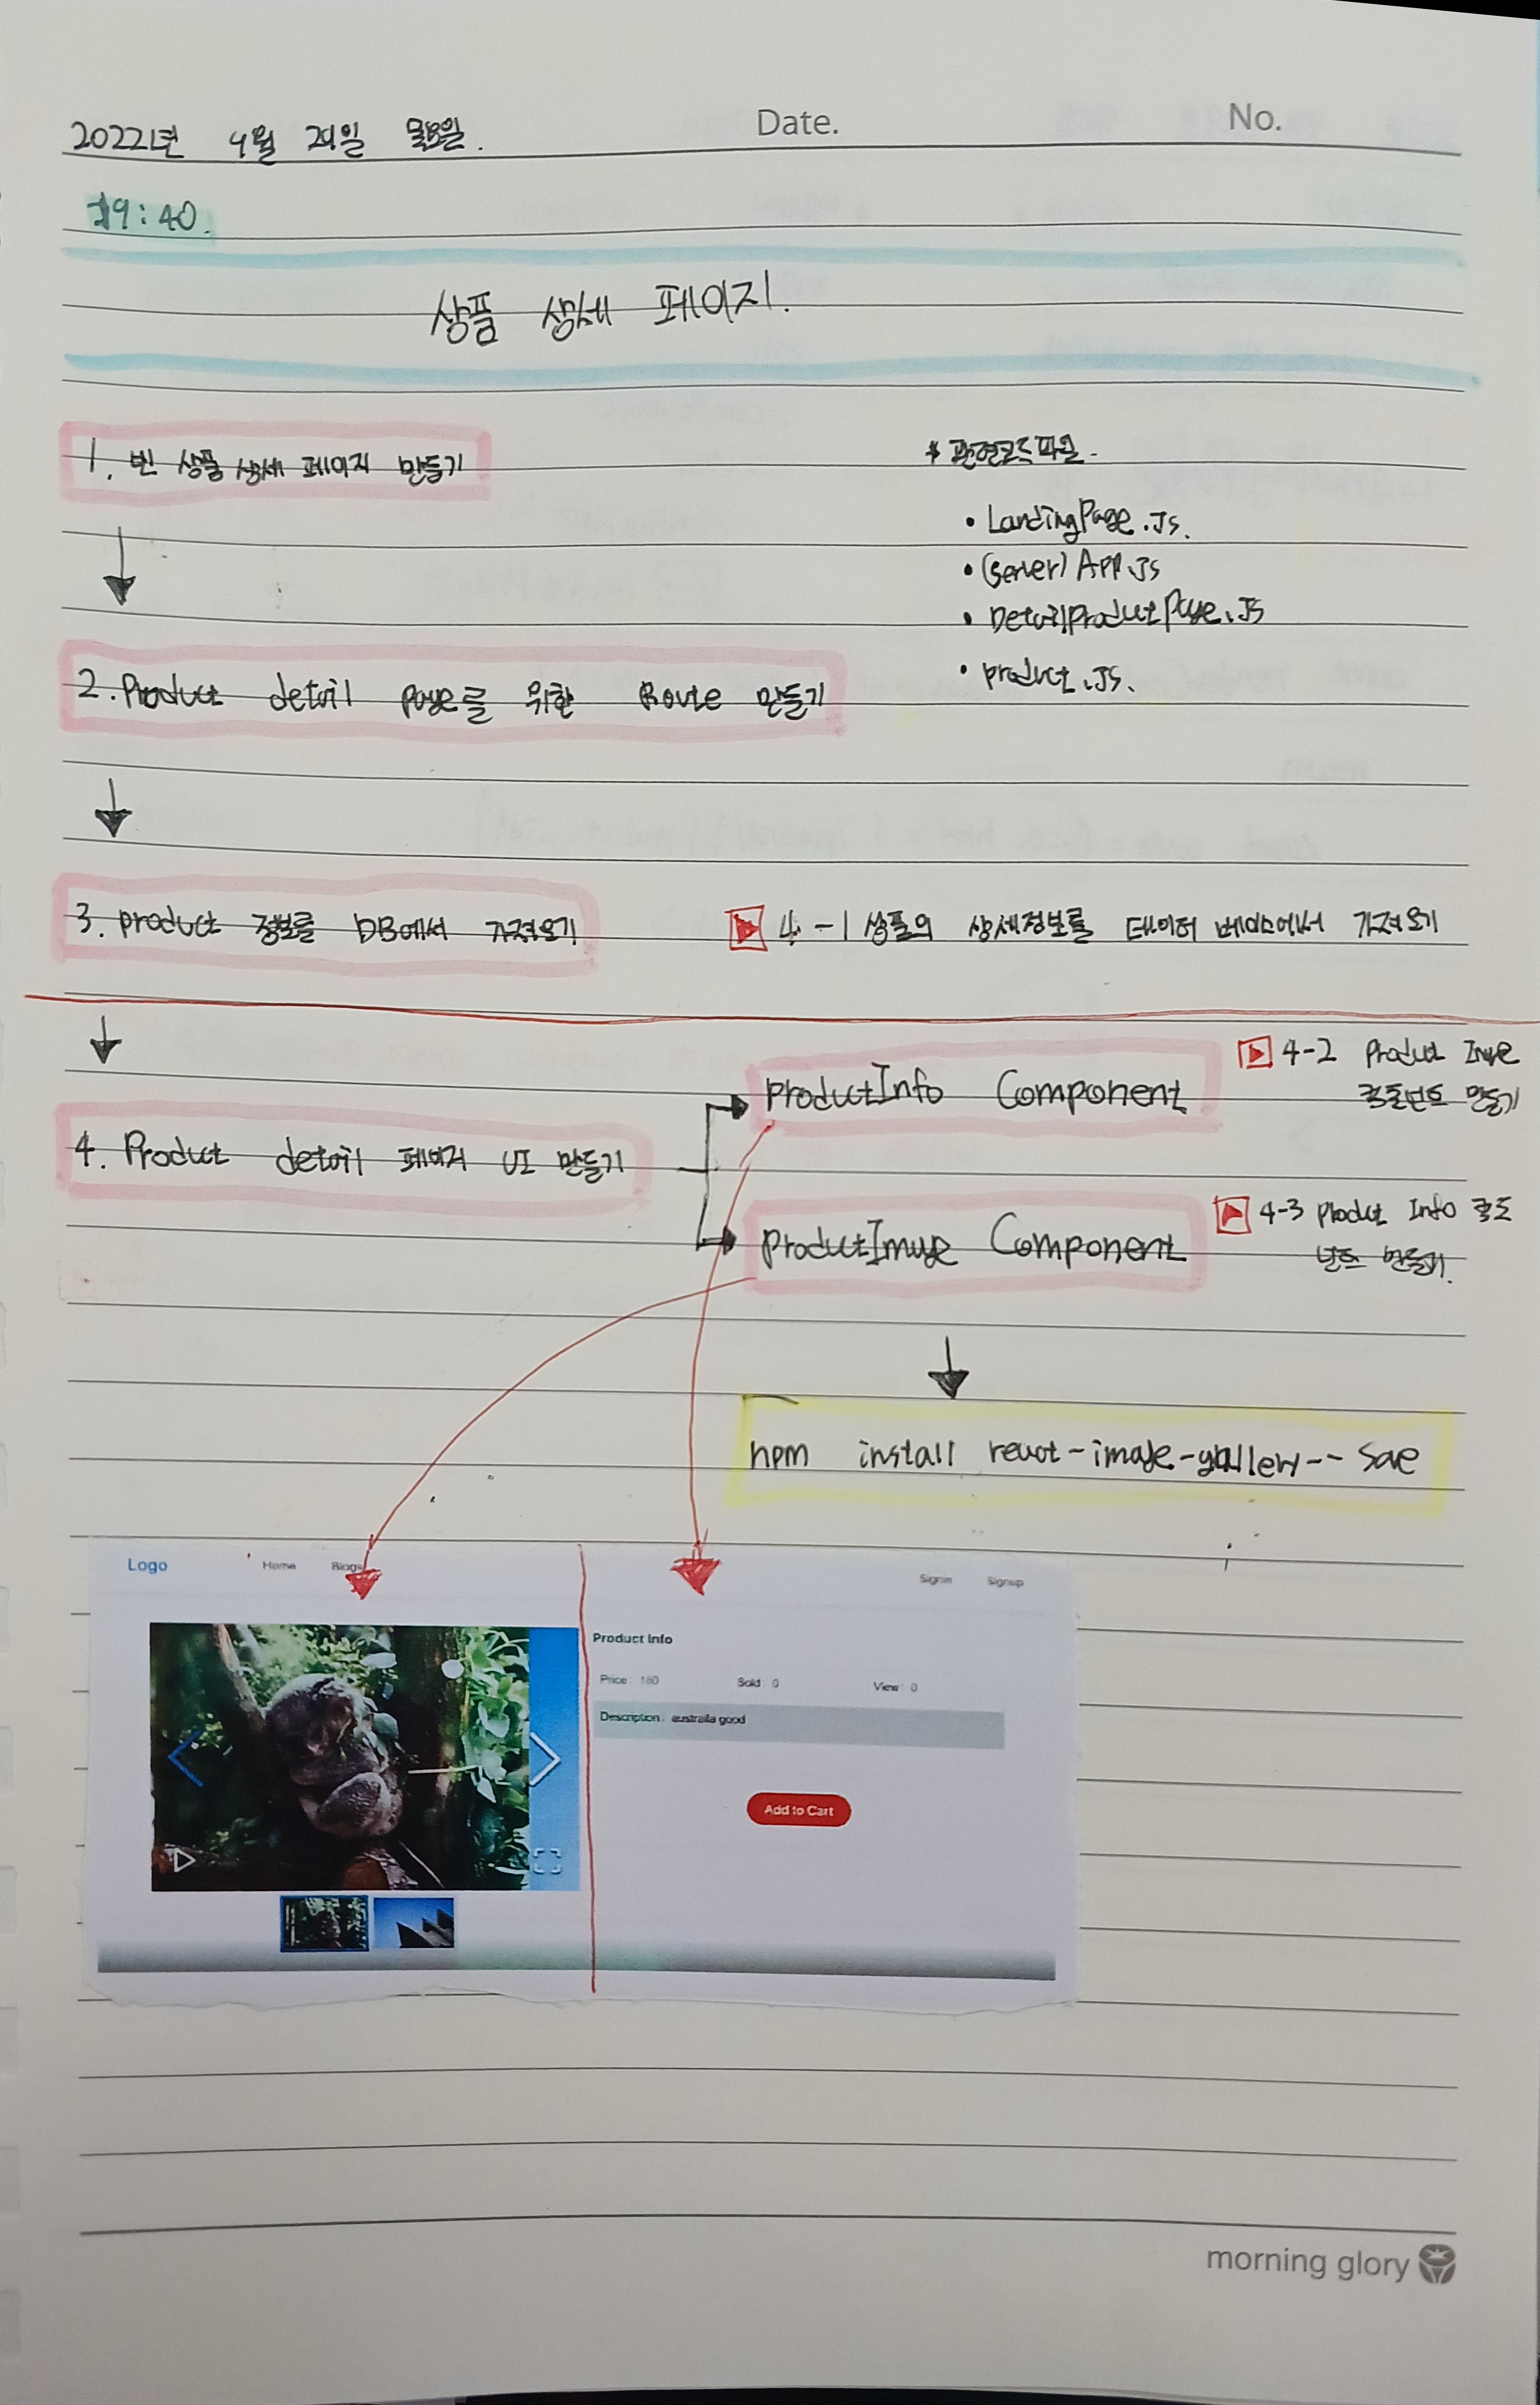 Date.
No.
2022년 4월 21일 목요일.
19:40.
상품 상세 페이지.
1. 빈 상품 상세 페이지 만들기
* 관련코드파일.
• LandingPage.Js.
• (server) App.Js
• DetailProductPage.JS
• product.Js.
2. Product detail page를 위한 Route 만들기
3. product 정보를 DB에서 가져오기
4-1 상품의 상세정보를 데이터 베이스에서 가져오기
ProductInfo Component
4-2 Product Image
콤포넌트 만들기
4. Product detail 페이지 UI 만들기
ProductImage Component
4-3 Product Info 콤포
넌트 만들기.
npm install react-image-gallery--save
Logo
Home
Blogs
Signin
Signup
Product Info
Price: 180
Sold: 0
View: 0
Description: austraila good
Add to Cart
morning glory